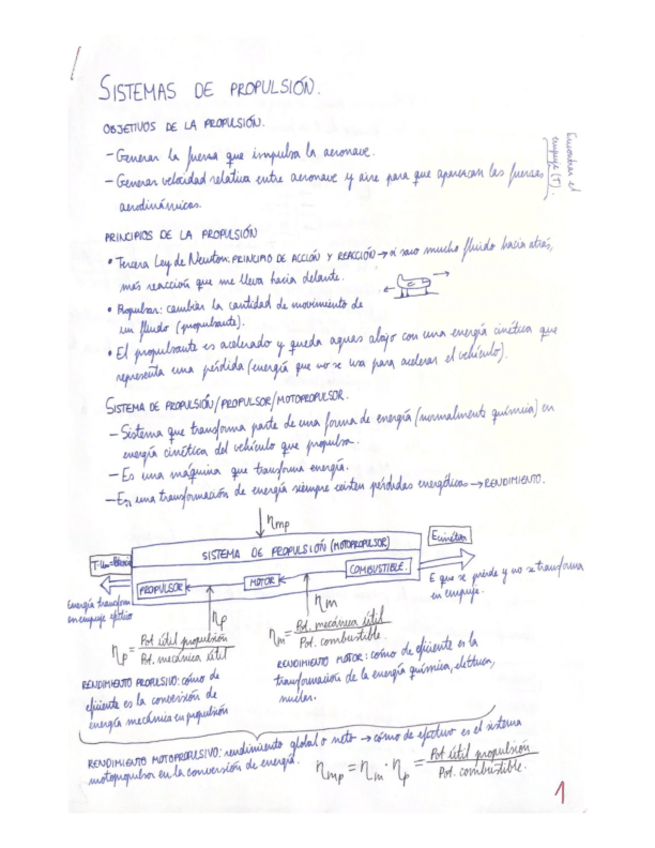 SISTEMAS DE PROPULSIÓN.
OBJETIVOS DE LA PROPULSIÓN.
- Generar la fuerza que impulsa la aeronave.
- Generar velocidad relativa entre aeronave y aire para que aparezcan las fuerzas
aerodinámicas.
Encontrar el
empuje (T).
PRINCIPIOS DE LA PROPULSIÓN
• Tercera Ley de Newton: PRINCIPIO DE ACCIÓN Y REACCIÓN → si saco mucho fluido hacia atrás,
más reacción que me lleva hacia delante.
• Propulsar: cambiar la cantidad de movimiento de
un fluido (propulsante).
• El propulsante es acelerado y queda aguas abajo con una energía cinética que
representa una pérdida (energía que no se usa para acelerar el vehículo).
SISTEMA DE PROPULSIÓN/PROPULSOR/MOTOPROPULSOR.
- Sistema que transforma parte de una forma de energía (normalmente química) en
energía cinética del vehículo que propulsa.
- Es una máquina que transforma energía.
- En una transformación de energía siempre existen pérdidas energéticas → RENDIMIENTO.
ηmp
SISTEMA DE PROPULSIÓN (MOTOPROPULSOR)
Ecinética
PROPULSOR ← MOTOR ← COMBUSTIBLE.
Energía transform
en empuje efectivo
E que se pierde y no se transforma
en empuje.
ηp
ηm
ηp = Pot. útil propulsión / Pot. mecánica útil
ηm = Pot. mecánica útil / Pot. combustible.
RENDIMIENTO PROPULSIVO: cómo de
eficiente es la conversión de
energía mecánica en propulsión
RENDIMIENTO MOTOR: cómo de eficiente es la
transformación de la energía química, eléctrica,
nuclear.
RENDIMIENTO MOTOPROPULSIVO: rendimiento global o neto → cómo de efectivo es el sistema
motopropulsor en la conversión de energía.
ηmp = ηm · ηp = Pot útil propulsión / Pot. combustible.
1